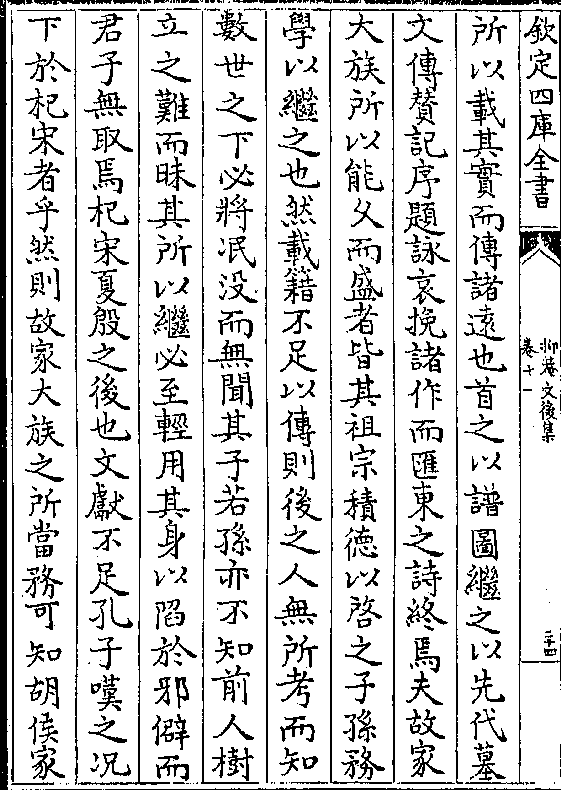 欽定四庫全書
抑菴文後集
卷十一
二十四
所以載其實而傳諸遠也首之以譜圖繼之以先代墓
文傳贊記序題詠哀挽諸作而匯東之詩終焉夫故家
大族所以能久而盛者皆其祖宗積德以啓之子孫務
學以繼之也然載籍不足以傳則後之人無所考而知
數世之下必將冺没而無聞其子若孫亦不知前人樹
立之難而昧其所以繼必至輕用其身以陷於邪僻而
君子無取焉杞宋夏殷之後也文獻不足孔子嘆之况
下於杞宋者乎然則故家大族之所當務可知胡侯家